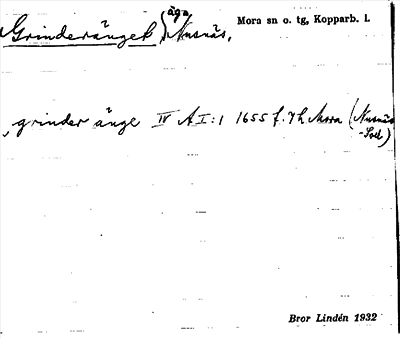 Grinderänget } äga Nusnäs, Mora sn o. tg, Kopparb. l.
grinder änge IV A I:1 1655 f. 7 h Mora (Nusnäs
Bror Lindén 1932